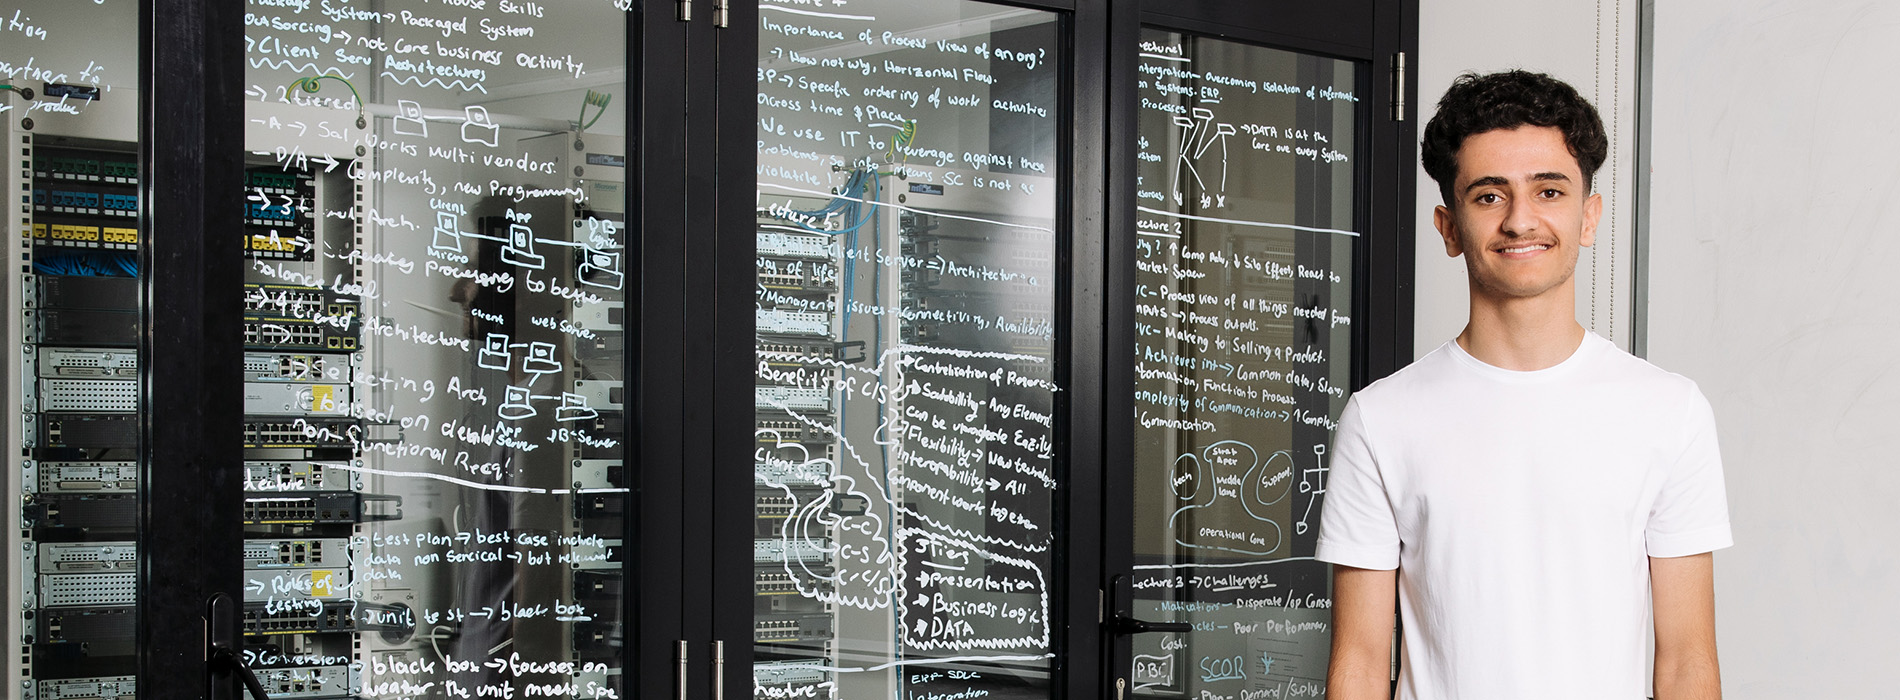 partners to,
House Skills
Package System → Packaged System
Outsourcing → not Core business activity.
→ Client Serv Architectures
→ 2 tiered
- A → Works Multi vendors.
- D/A → Complexity, new Programming.
→ 3 Arch.
Client
Micro
App
DB
Logic
- A →
Processing to better
balance load.
→ 4 tiered Architecture
client
web Server
App
Server
DB-Server.
→ Selecting Arch
based on detail
non-functional Req!.
Lecture
→ Roles of
testing
→ test plan → best case include
data non → but relevant
data
→ unit test → black box.
→ Conversion
→ black box → focuses on
weather the unit meets Spe
Importance of Process View of an org?
→ How not why, Horizontal Flow.
BP → Specific ordering of work activities
across time & Place
We use IT to leverage against these
Problems, so info means SC is not as
Violatile!
Lecture 5
Client Server => Architecture a
way of life
→ Management issues - Connectivity, Availibility
Benefit's of C/S
→ Centrelization of Resources.
→ Scalability - Any Element
can be upgrade Easily.
→ Flexibility → New
Interopability → All
Component work together
Client Server
C-C
C-S
C-C/S
3 Tier
→ Presentation
→ Business Logic
→ DATA
Lecture 7
ERP SDLC
Intergration
Lecture 1
Intergration - overcoming isolation of informat-
on Systems. ERP.
Processes
→ DATA is at the
Core ove every System
Lecture 2
Why? ↑ Comp Adv, ↓ Silo Effects React to
Market Space
VC - Process view of all things needed from
inputs → Process outputs.
PVC - Makeing to Selling a Product.
Achieves int → Common data,
Information, Function to Process.
Complexity of Communication → ↑
Communication.
tech
Strat
Apex
Middle
Lane
Support.
Operational Core
Lecture 3 → Challenges
Motivations - Disperate /op
Poor Performance,
Cost.
SCOR
Plan - Demand/Supply